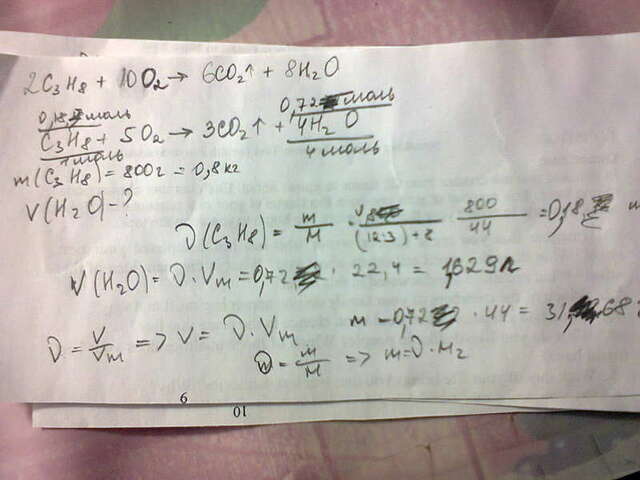 2C₃H₈ + 10O₂ → 6CO₂↑ + 8H₂O
0,18 моль 0,72 моль
C₃H₈ + 5O₂ → 3CO₂↑ + 4H₂O
1 моль 4 моль
m(C₃H₈) = 800г = 0,8 кг
V(H₂O) - ?
D(C₃H₈) = m/M = /(12·3)+8 800/44 = 0,18
V(H₂O) = D · Vm = 0,72 · 22,4 = 1,629л
m - 0,72 · 44 = 31,68
D = V/Vm => V = D · Vm
D = m/M => m = D · M₂
9
10